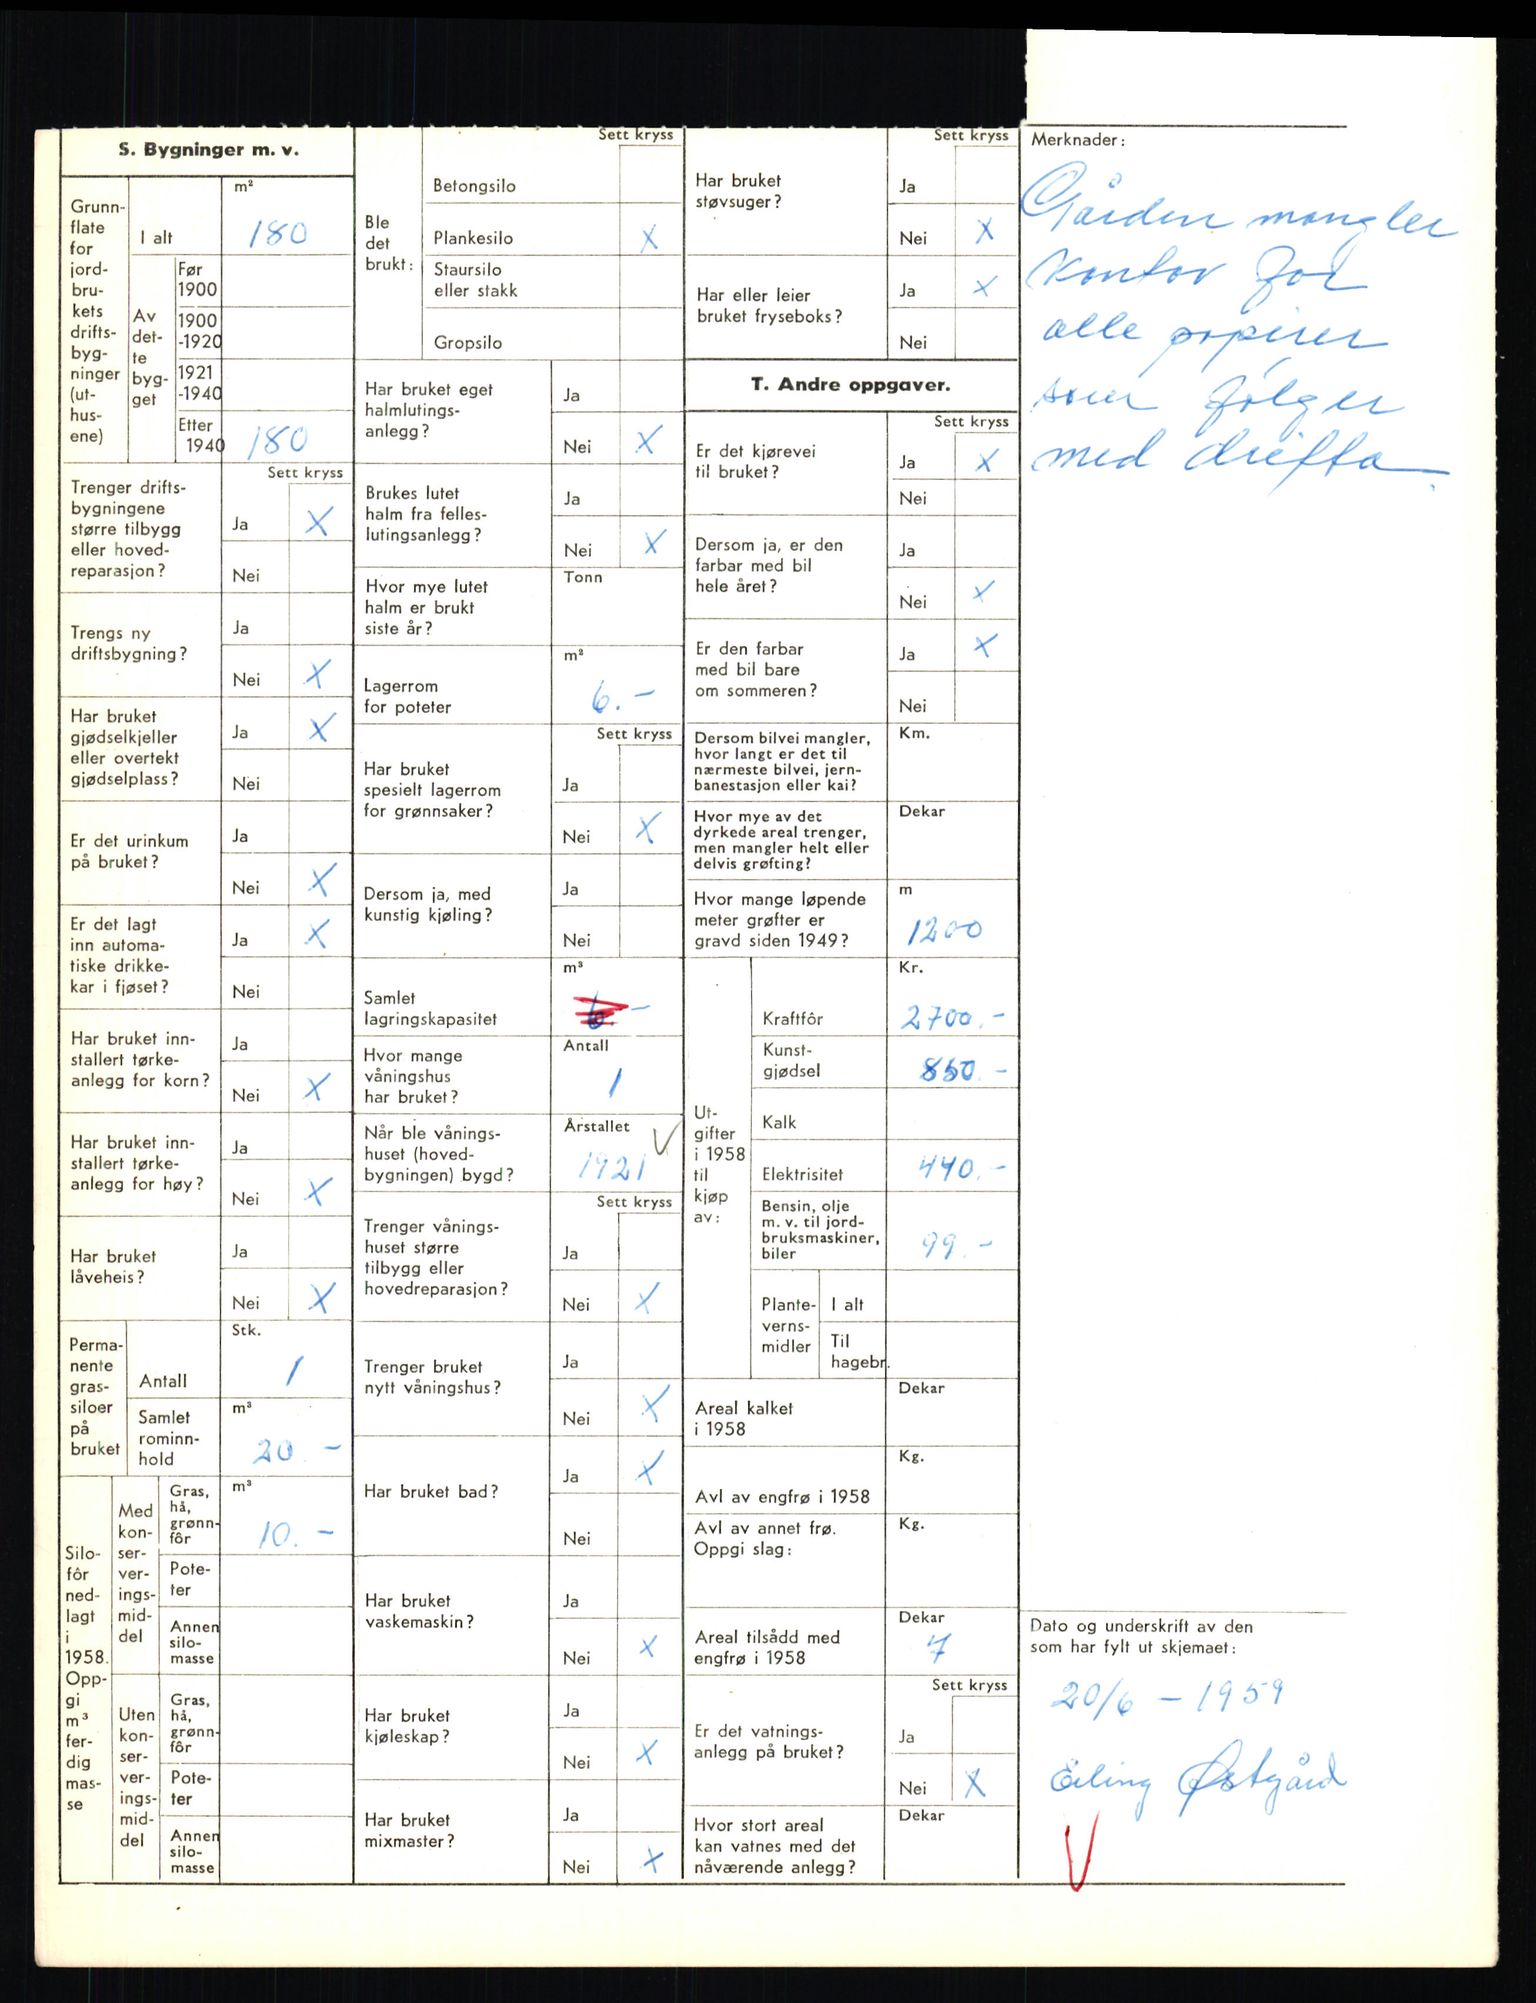 S. Bygninger m. v.
Grunn-
flate
for
jord-
bru-
kets
drifts-
byg-
ninger
(ut-
hus-
ene)
I alt
m²
180
Av
det-
te
byg-
get
Før
1900
1900
-1920
1921
-1940
Etter
1940
180
Sett kryss
Trenger drifts-
bygningene
større tilbygg
eller hoved-
reparasjon?
Ja X
Nei
Trengs ny
driftsbygning?
Ja
Nei X
Har bruket
gjødselkjeller
eller overtekt
gjødselplass?
Ja X
Nei
Er det urinkum
på bruket?
Ja
Nei X
Er det lagt
inn automa-
tiske drikke-
kar i fjøset?
Ja X
Nei
Har bruket inn-
stallert tørke-
anlegg for korn?
Ja
Nei X
Har bruket inn-
stallert tørke-
anlegg for høy?
Ja
Nei X
Har bruket
låveheis?
Ja
Nei X
Perma-
nente
gras-
siloer
på
bruket
Antall
Stk.
1
Samlet
rominn-
hold
m³
20 -
Silo-
fôr
ned-
lagt
i
1958.
Opp-
gi
m³
fer-
dig
mas-
se
Med
kon-
ser-
ver-
ings-
mid-
del
Gras,
hå,
grønn-
fôr
m³
10. -
Pote-
ter
Annen
silo-
masse
Uten
kon-
ser-
ver-
ings-
mid-
del
Gras,
hå,
grønn-
fôr
Pote-
ter
Annen
silo-
masse
Sett kryss
Ble
det
brukt:
Betongsilo
Plankesilo X
Staursilo
eller stakk
Gropsilo
Har bruket eget
halmlutings-
anlegg?
Ja
Nei X
Brukes lutet
halm fra felles-
lutingsanlegg?
Ja
Nei X
Hvor mye lutet
halm er brukt
siste år?
Tonn
Lagerrom
for poteter
m²
6. -
Sett kryss
Har bruket
spesielt lagerrom
for grønnsaker?
Ja
Nei X
Dersom ja, med
kunstig kjøling?
Ja
Nei
Samlet
lagringskapasitet
m³
6. -
Hvor mange
våningshus
har bruket?
Antall
1
Når ble vånings-
huset (hoved-
bygningen) bygd?
Årstallet
1921 V
Sett kryss
Trenger vånings-
huset større
tilbygg eller
hovedreparasjon?
Ja
Nei X
Trenger bruket
nytt våningshus?
Ja
Nei X
Har bruket bad?
Ja X
Nei
Har bruket
vaskemaskin?
Ja
Nei X
Har bruket
kjøleskap?
Ja
Nei X
Har bruket
mixmaster?
Ja
Nei X
Sett kryss
Har bruket
støvsuger?
Ja
Nei X
Har eller leier
bruket fryseboks?
Ja X
Nei
T. Andre oppgaver.
Sett kryss
Er det kjørevei
til bruket?
Ja X
Nei
Dersom ja, er den
farbar med bil
hele året?
Ja
Nei X
Er den farbar
med bil bare
om sommeren?
Ja X
Nei
Dersom bilvei mangler,
hvor langt er det til
nærmeste bilvei, jern-
banestasjon eller kai?
Km.
Hvor mye av det
dyrkede areal trenger,
men mangler helt eller
delvis grøfting?
Dekar
Hvor mange løpende
meter grøfter er
gravd siden 1949?
m
1200
Ut-
gifter
i 1958
til
kjøp
av:
Kr.
Kraftfôr
2700.-
Kunst-
gjødsel
850.-
Kalk
Elektrisitet
440.-
Bensin, olje
m. v. til jord-
bruksmaskiner,
biler
99.-
Plante-
verns-
midler
I alt
Til
hagebr.
Areal kalket
i 1958
Dekar
Avl av engfrø i 1958
Kg.
Avl av annet frø.
Oppgi slag:
Kg.
Areal tilsådd med
engfrø i 1958
Dekar
7
Sett kryss
Er det vatnings-
anlegg på bruket?
Ja
Nei X
Hvor stort areal
kan vatnes med det
nåværende anlegg?
Dekar
Merknader:
Gården mangler
kontor for
alle papirer
som følger
med drifta.
Dato og underskrift av den
som har fylt ut skjemaet:
20/6 - 1959
Eiling Østgård
V